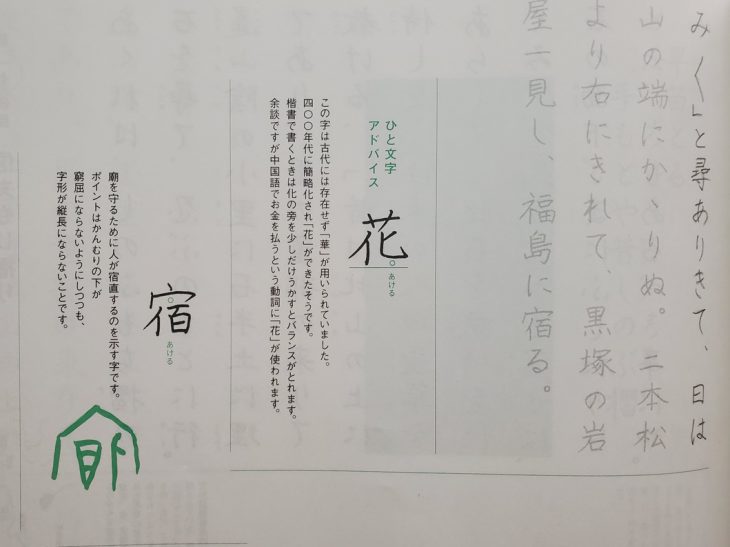 み〳〵と尋ありきて、日は
山の端にかゝりぬ。二本松
より右にきれて、黒塚の岩
屋一見し、福島に宿る。
ひと文字
アドバイス
花
あける
この字は古代には存在せず「華」が用いられていました。
四〇〇年代に簡略化され「花」ができたそうです。
楷書で書くときは化の旁を少しだけうかすとバランスがとれます。
余談ですが中国語でお金を払うという動詞に「花」が使われます。
宿
あける
廟を守るために人が宿直するのを示す字です。
ポイントはかんむりの下が
窮屈にならないようにしつつも、
字形が縦長にならないことです。